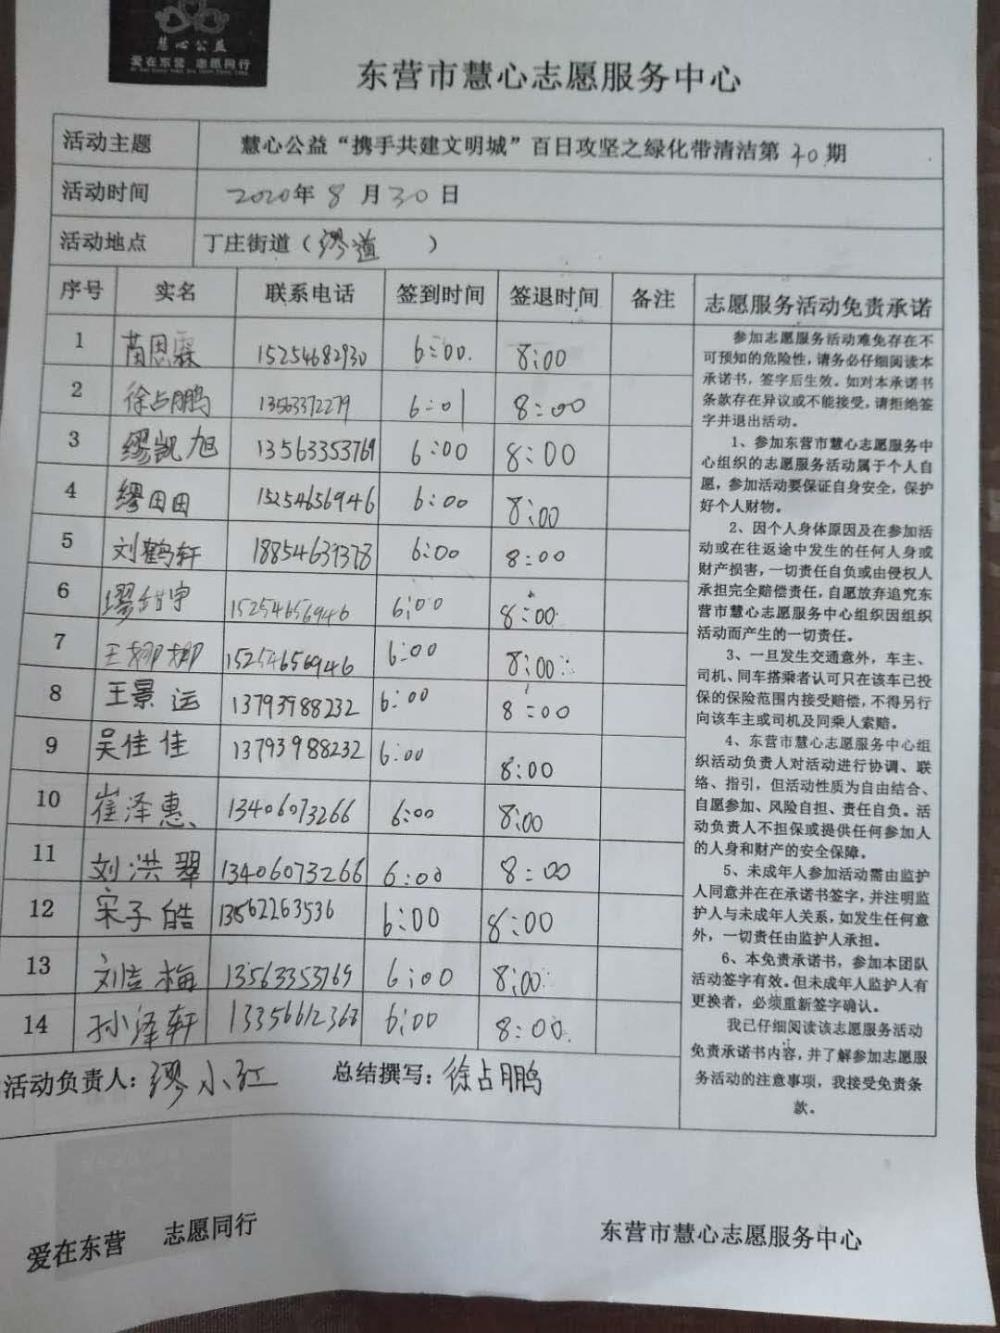 慧心公益
爱在东营 志愿同行
东营市慧心志愿服务中心
活动主题 慧心公益“携手共建文明城”百日攻坚之绿化带清洁第40期
活动时间 2020年8月30日
活动地点 丁庄街道（缪道 ）
序号 实名 联系电话 签到时间 签退时间 备注
1 恩霖 15254682930 6:00. 8:00
2 徐占鹏 13563372279 6:01 8:00
3 缪凯旭 13563353769 6:00 8:00
4 缪田田 15254656946 6:00 8:00
5 刘鹤轩 18854631378 6:00 8:00
6 缪宇 15254656946 6:00 8:00
7 王娜娜 15254656946 6:00 8:00
8 王景运 13793988232 6:00 8:00
9 吴佳佳 13793988232 6:00 8:00
10 崔泽惠 13406073266 6:00 8:00
11 刘洪翠 13406073266 6:00 8:00
12 宋子皓 13562263536 6:00 8:00
13 刘吉梅 13563353769 6:00 8:00
14 孙泽轩 13356612368 6:00 8:00
活动负责人：缪小红 总结撰写：徐占鹏
志愿服务活动免责承诺
参加志愿服务活动难免存在不
可预知的危险性，请务必仔细阅读本
承诺书，签字后生效。如对本承诺书
条款存在异议或不能接受，请拒绝签
字并退出活动。
1、参加东营市慧心志愿服务中
心组织的志愿服务活动属于个人自
愿，参加活动要保证自身安全，保护
好个人财物。
2、因个人身体原因及在参加活
动或在往返途中发生的任何人身或
财产损害，一切责任自负或由侵权人
承担完全赔偿责任，自愿放弃追究东
营市慧心志愿服务中心组织因组织
活动而产生的一切责任。
3、一旦发生交通意外，车主、
司机、同车搭乘者认可只在该车已投
保的保险范围内接受赔偿，不得另行
向该车主或司机及同乘人索赔。
4、东营市慧心志愿服务中心组
织活动负责人对活动进行协调、联
络、指引，但活动性质为自由结合、
自愿参加、风险自担、责任自负。活
动负责人不担保或提供任何参加人
的人身和财产的安全保障。
5、未成年人参加活动需由监护
人同意并在在承诺书签字，并注明监
护人与未成年人关系，如发生任何意
外，一切责任由监护人承担。
6、本免责承诺书，参加本团队
活动签字有效。但未成年人监护人有
更换者，必须重新签字确认。
我已仔细阅读该志愿服务活动
免责承诺书内容，并了解参加志愿服
务活动的注意事项，我接受免责条
款。
爱在东营 志愿同行
东营市慧心志愿服务中心